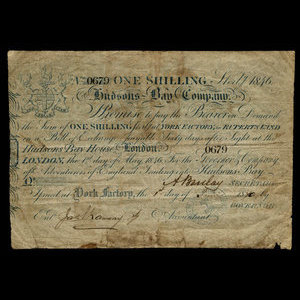 No. 0679 ONE SHILLING Sterlg 1846
Hudsons Bay Company.
Promise to pay the Bearer on Demand
the Sum of ONE SHILLING Sterlg at YORK FACTORY in RUPERTS LAND
in a Bill of Exchange payable Sixty days after Sight at the
HUDSONS BAY HOUSE London. 0679
LONDON, the 1st day of May 1846. For the Governor & Company
of Adventurers of England Trading to Hudsons Bay
A Barclay SECRETARY
Issued at York Factory, the day of
GOVERNOR
Entd Accountant